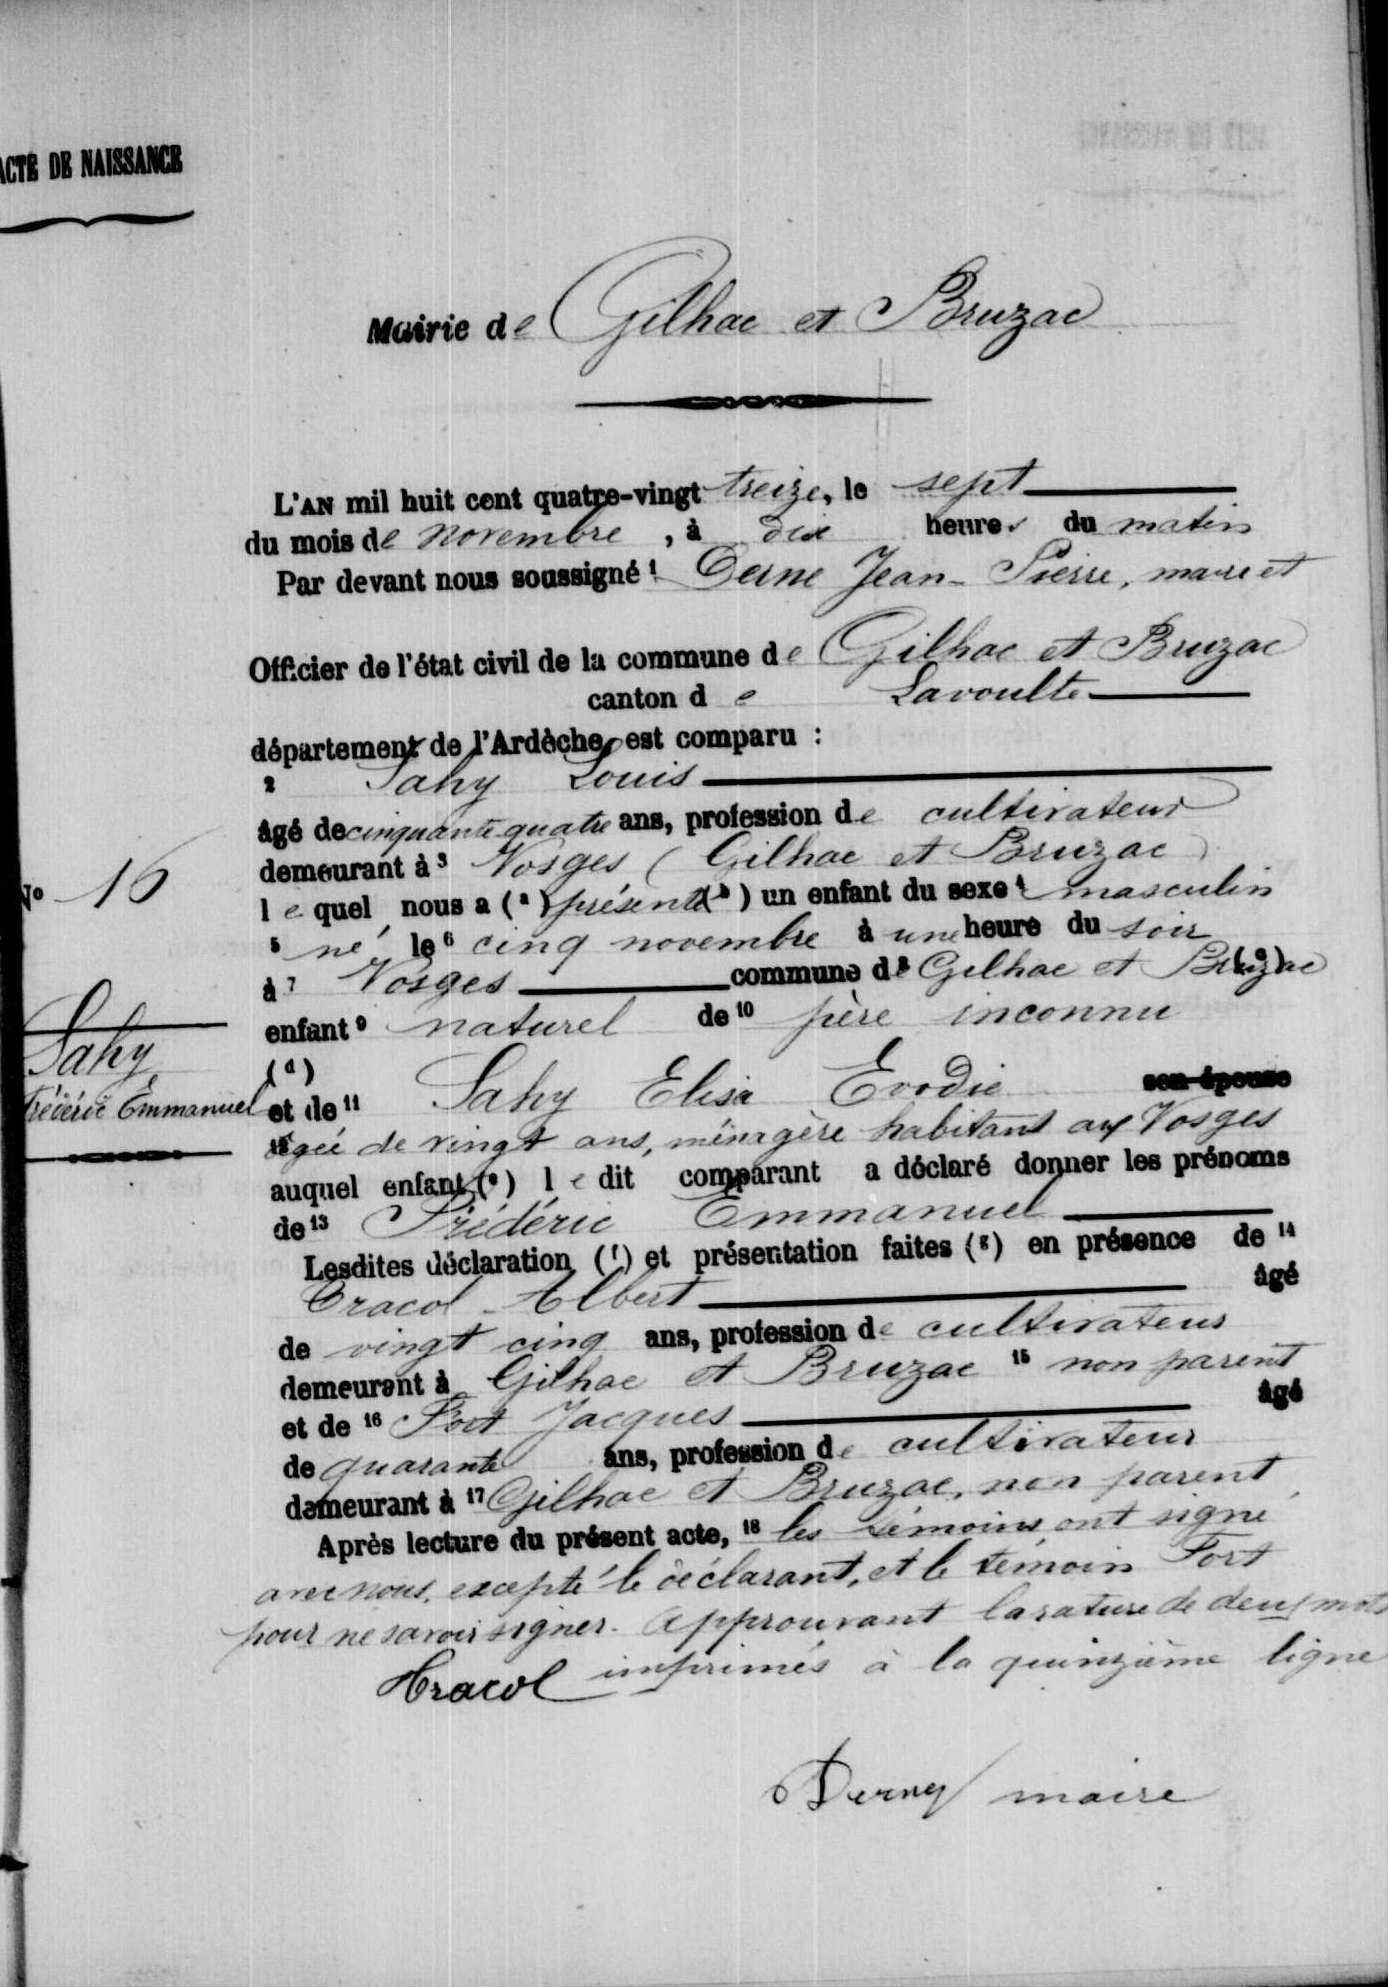 ACTE DE NAISSANCE
Mairie de Gilhac et Bruzac
L'AN mil huit cent quatre-vingt treize, le sept
du mois de novembre, à dix heures du matin
Par devant nous soussigné 1 Derne Jean-Pierre, maire et
Officier de l'état civil de la commune de Gilhac et Bruzac
canton de Lavoulte
département de l'Ardèche, est comparu :
2 Sahy Louis
âgé de cinquante quatre ans, profession de cultivateur
demeurant à 3 Vosges (Gilhac et Bruzac)
lequel nous a (a) présenté (b) un enfant du sexe 4 masculin
5 né, le 6 cinq novembre à une heure du soir
à 7 Vosges commune de 8 Gilhac et Bruzac (c)
enfant 9 naturel de 10 père inconnu
(d)
et de 11 Sahy Elisa Evodie son épouse
12 âgée de vingt ans, ménagère habitant aux Vosges
auquel enfant (e) le dit comparant a déclaré donner les prénoms
de 13 Frédéric Emmanuel
Lesdites déclaration (f) et présentation faites (g) en présence de 14
Cracol Albert âgé
de vingt cinq ans, profession de cultivateur
demeurant à Gilhac et Bruzac 15 non parent
et de 16 Fort Jacques âgé
de quarante ans, profession de cultivateur
demeurant à 17 Gilhac et Bruzac, non parent
Après lecture du présent acte, 18 les témoins ont signé
avec nous, excepté le déclarant, et le témoin Fort
pour ne savoir signer. Approuvant la rature de deux mots
imprimés à la quinzième ligne
Cracol
Derne maire
No 16
Sahy
Frédéric Emmanuel